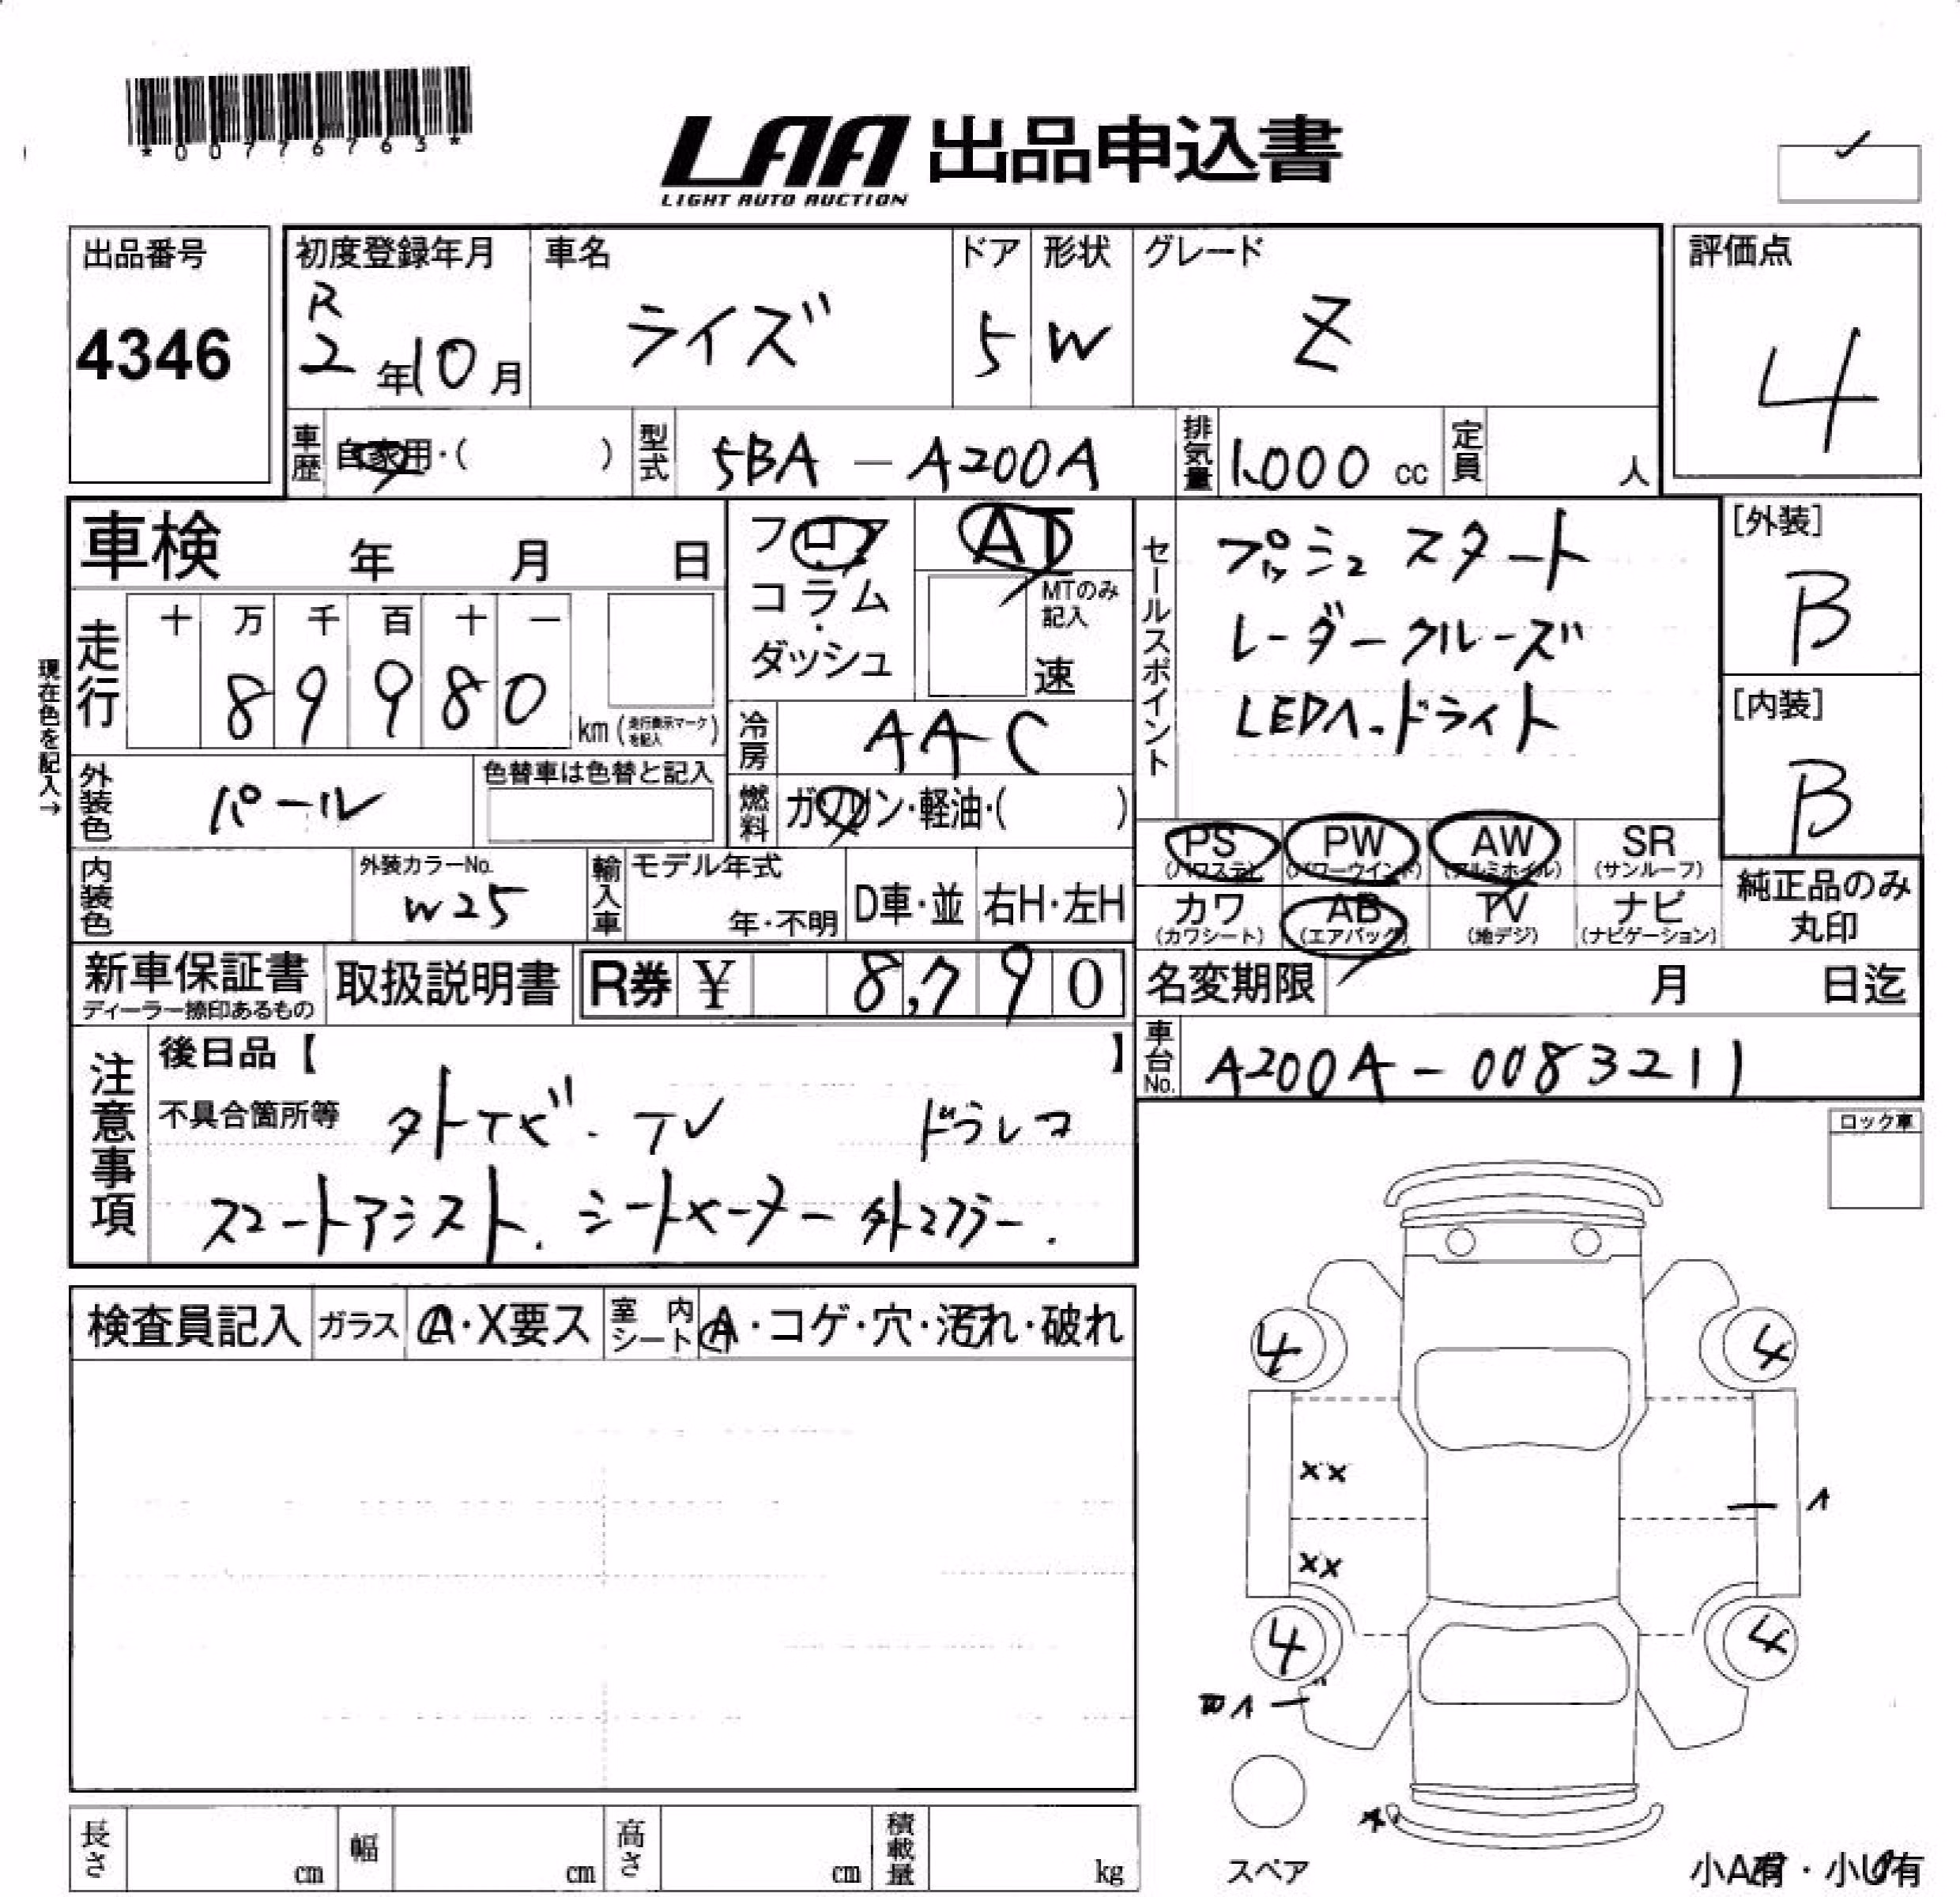 *00776763*
LAA 出品申込書
LIGHT AUTO AUCTION
出品番号
4346
初度登録年月
R
2年10月
車名
ライズ
ドア
5
形状
W
グレード
Z
評価点
4
車歴
自家用・( )
型式
5BA － A200A
排気量
1.000 cc
定員
人
車検 年 月 日
現在色を記入→
走行
十 万 千 百 十 一
8 9 9 8 0
km (走行表示マークを記入)
フロア
コラム・
ダッシュ
AT
MTのみ記入
速
冷房
AAC
燃料
ガソリン・軽油・( )
外装色
パール
色替車は色替と記入
内装色
外装カラーNo.
W25
輸入車
モデル年式
年・不明
D車・並
右H・左H
セールスポイント
プッシュ スタート
レーダークルーズ
LEDヘ.ドライト
[外装]
B
[内装]
B
PS
(パワステ)
PW
(パワーウインド)
AW
(アルミホイル)
SR
(サンルーフ)
カワ
(カワシート)
AB
(エアバッグ)
TV
(地デジ)
ナビ
(ナビゲーション)
純正品のみ
丸印
新車保証書
ディーラー捺印あるもの
取扱説明書
R券 ¥ 8,790
名変期限 月 日迄
車台No.
A200A－0083211
注意事項
後日品【 】
不具合箇所等
外ナビ. TV ドラレコ
スマートアシスト. シートヒーター 外ミラー.
ロック車
検査員記入
ガラス
A・X要ス
室内シート
A・コゲ・穴・汚れ・破れ
4
4
XX
XX
4
4
スペア
小A有・小U有
長さ
cm
幅
cm
高さ
cm
積載量
kg